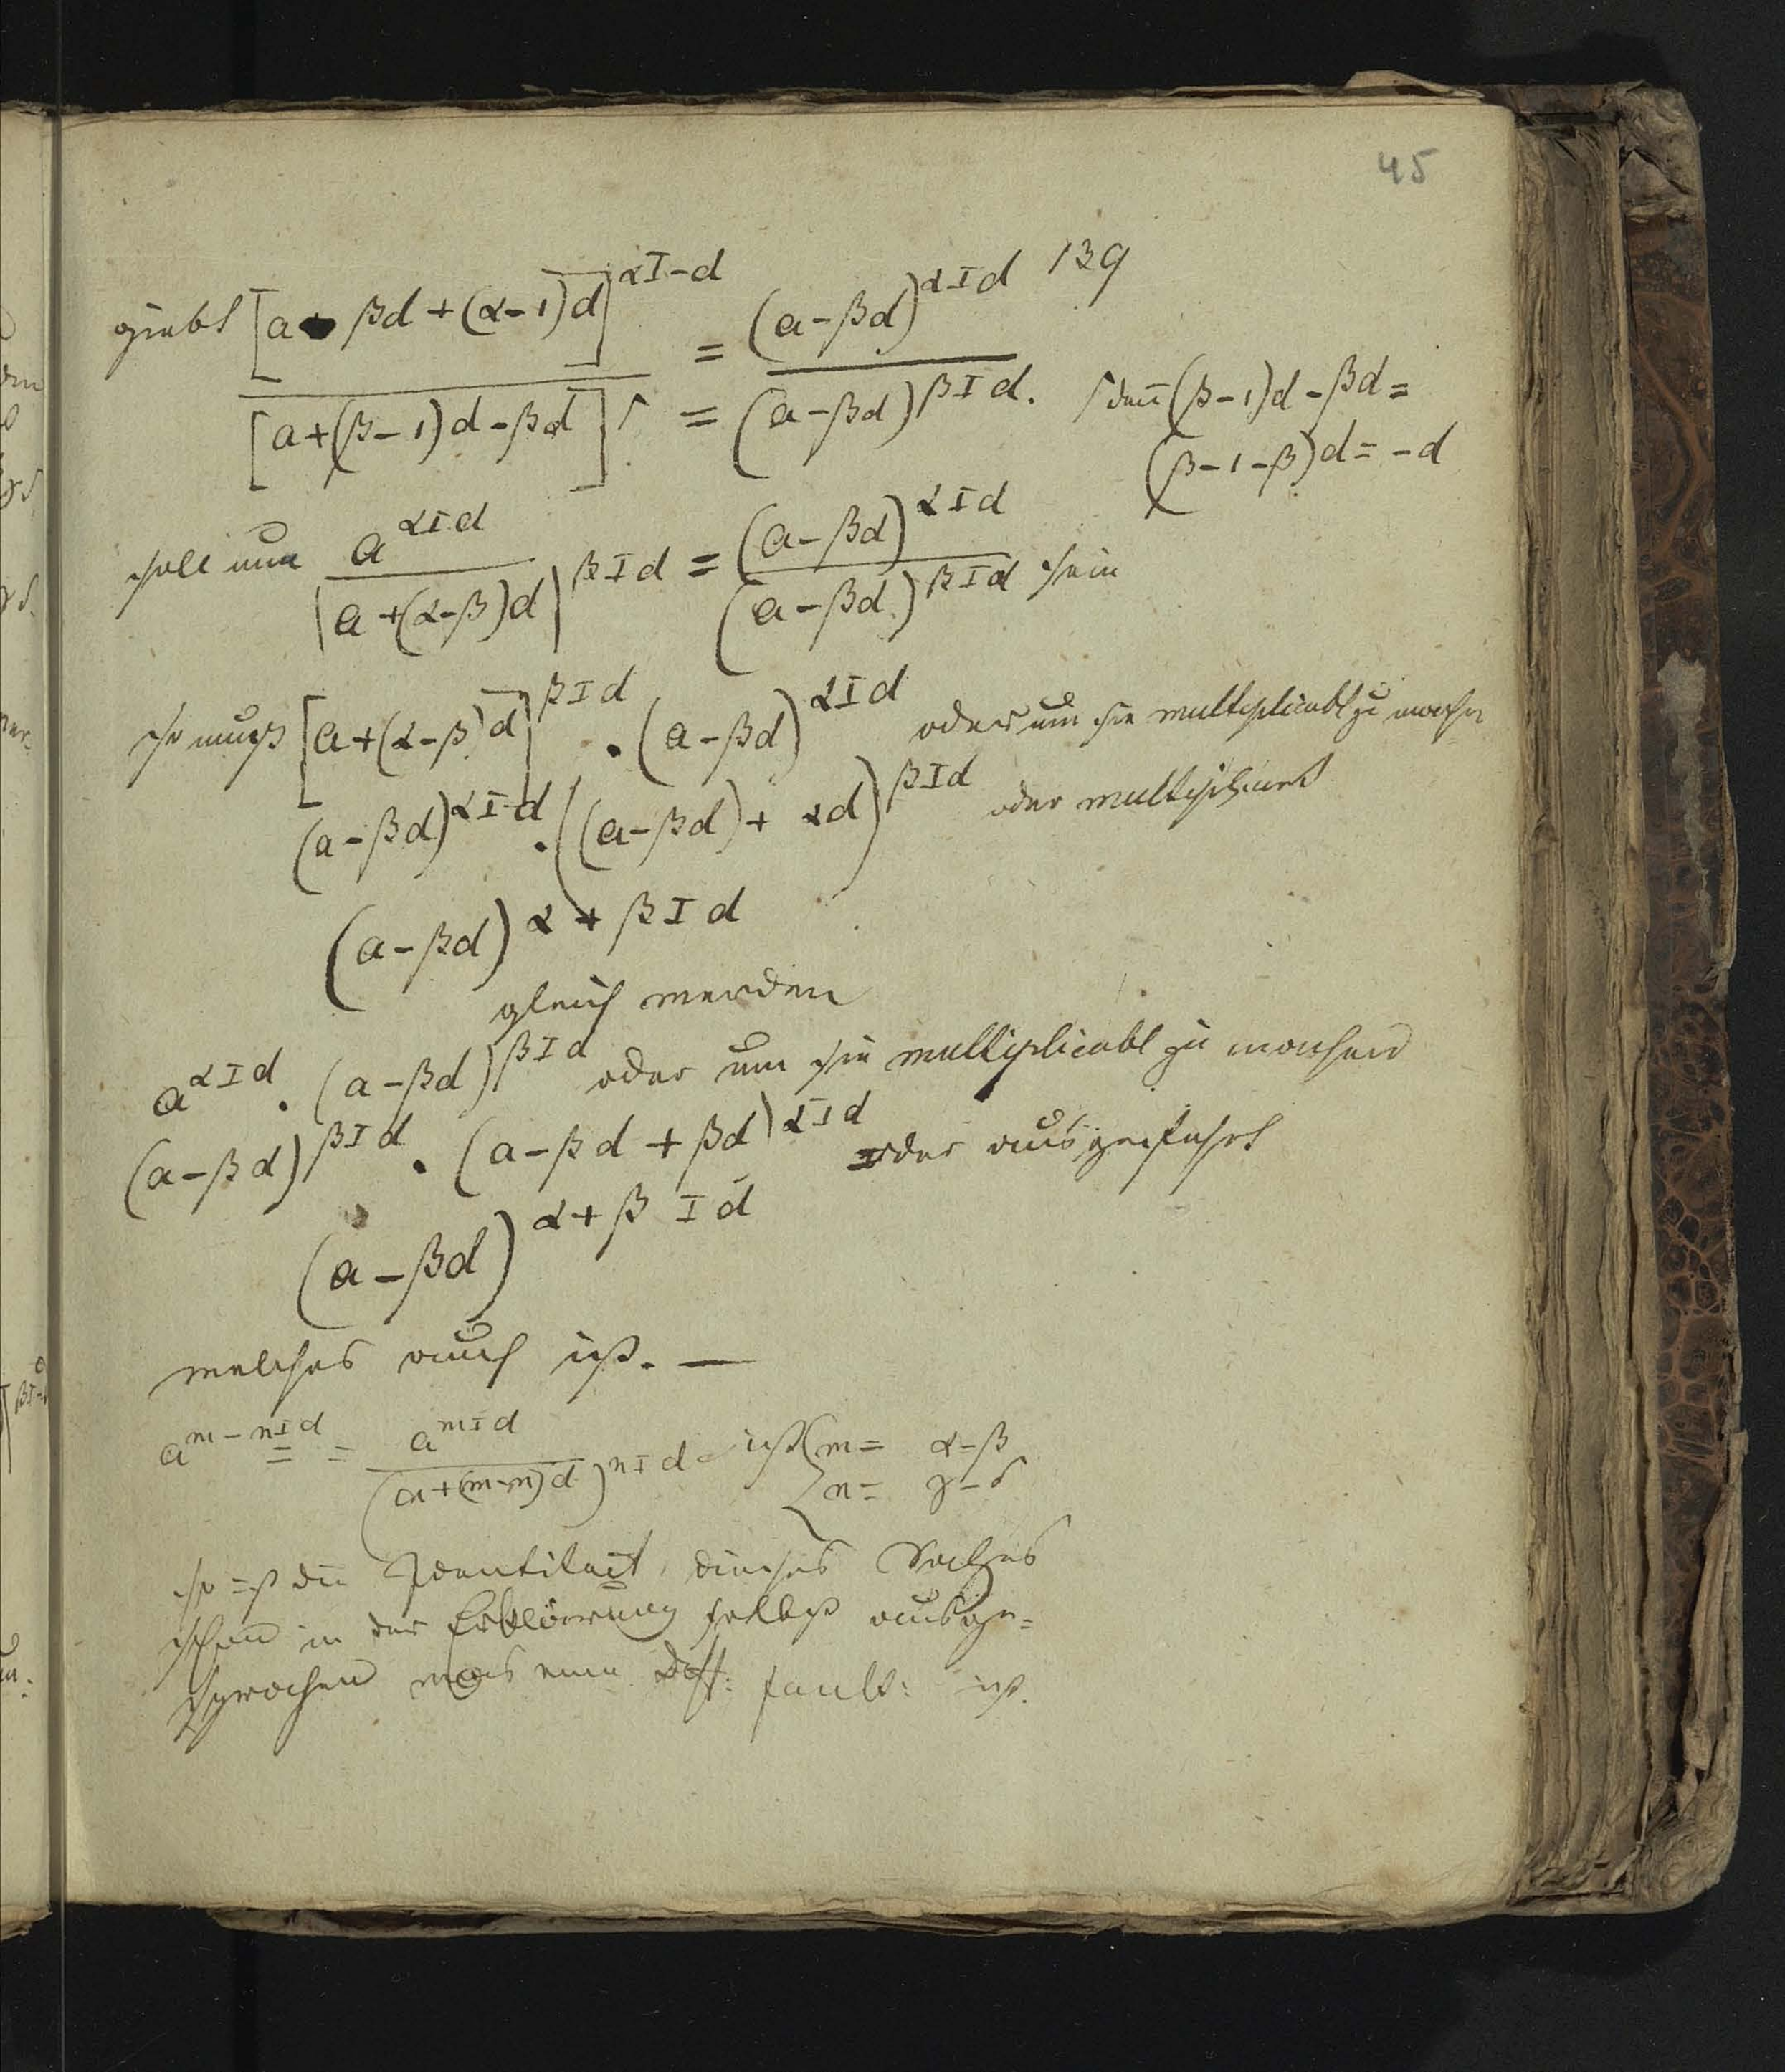 45
139
giebt [a - βd + (α-1)d]^{αI-d} = (a-βd)^{αId}
[a+(β-1)d-βd] = (a-βd)^{βId}. denn (β-1)d-βd =
(β-1-β)d = -d
soll nun a^{αId} / [a+(α-β)d]^{βId} = (a-βd)^{αId} / (a-βd)^{βId} sein
so muß [a+(α-β)d]^{βId} . (a-βd)^{αId} oder um sie multiplicabl zu machen
(a-βd)^{αId} . ((a-βd)+αd)^{βId} oder multiplicirt
(a-βd)^{α+βId}
gleich werden
a^{αId} . (a-βd)^{βId} oder um sie multiplicabl zu machen
(a-βd)^{βId} . (a-βd+βd)^{αId} oder ausgeführt
(a-βd)^{α+β Id}
welches auch ist. —
a^{m-nId} = a^{mId} / (a+(m-n)d)^{nId} ist { m= α-β
n= γ-δ
so ist die Identitaet dieses Satzes
schon in der Erklärung selbst ausge=
sprochen was eine Diff: facult: ist.